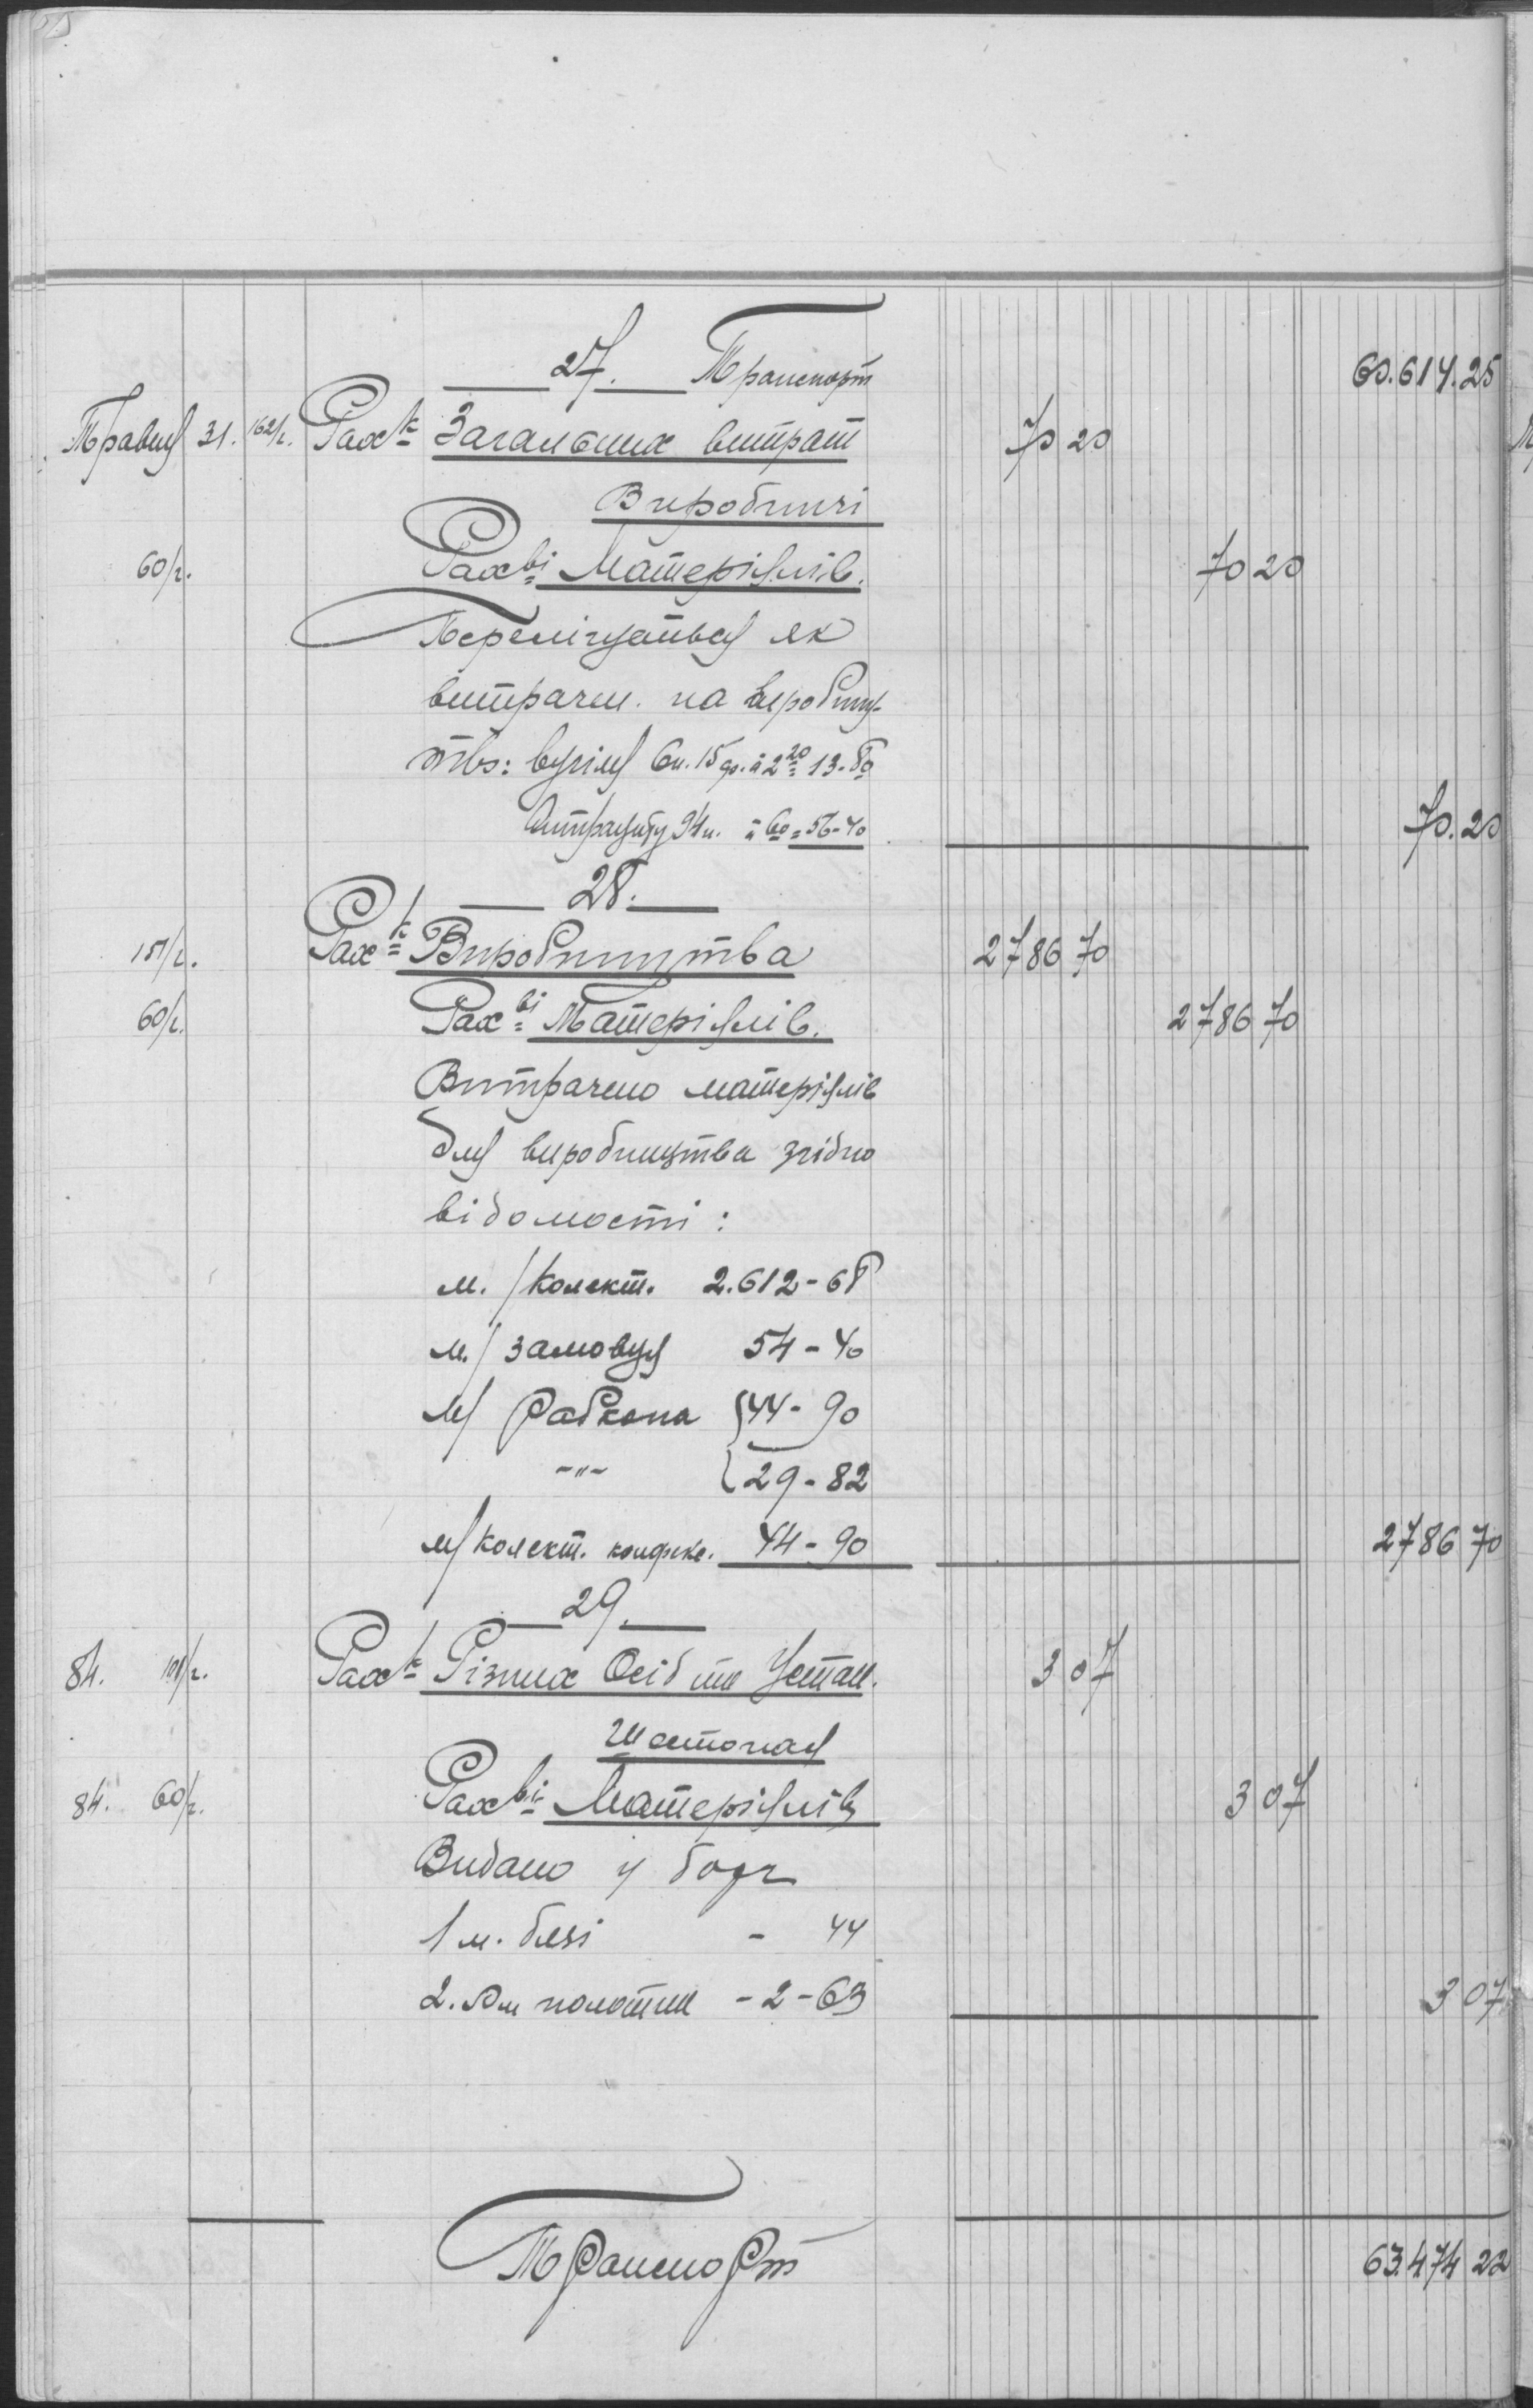 27. Транспорт 60.614.25
Травня 31. 162/г. Рах-к Загальних витрат 70 20
Виробничі
60/г. Рах-ві Матеріялів. 70 20
Перелічується як
витрачен. на виробниц-
тво: вугілля 6 п. 15 ф. à 2 20 13-80
Антрациту 94 п. à 60 = 56-40 70.20
28.
151/г. Рах-к Виробництва 2786 70
60/г. Рах-ві Матеріялів. 2786 70
Витрачено матеріялів
для виробництва згідно
відомости:
м./Колект. 2.612-68
м./замовця 54-40
м/Рабкопа 44-90
-"- 29-82
м/колект. конфекц. 44-90 2786 70
29.
84. 101/г. Рах-к Різних Осіб та Устан. 3 07
84. 60/г. Рах-ві Матеріялів 3 07
Видано у борг
1 м. бязі - 44
2. м полотна - 2-63 3 07
Транспорт 63.474 22